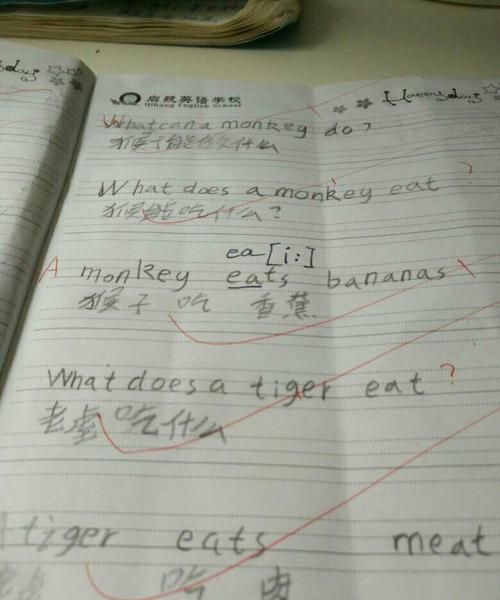 day
启航英语学校
Qihang English School
Happy day
What can a monkey do?
猴子能做什么
What does a monkey eat?
猴能吃什么?
ea[i:]
A monkey eats bananas
猴子 吃 香蕉
What does a tiger eat?
老虎吃什么
A tiger eats meat
老虎 吃 肉